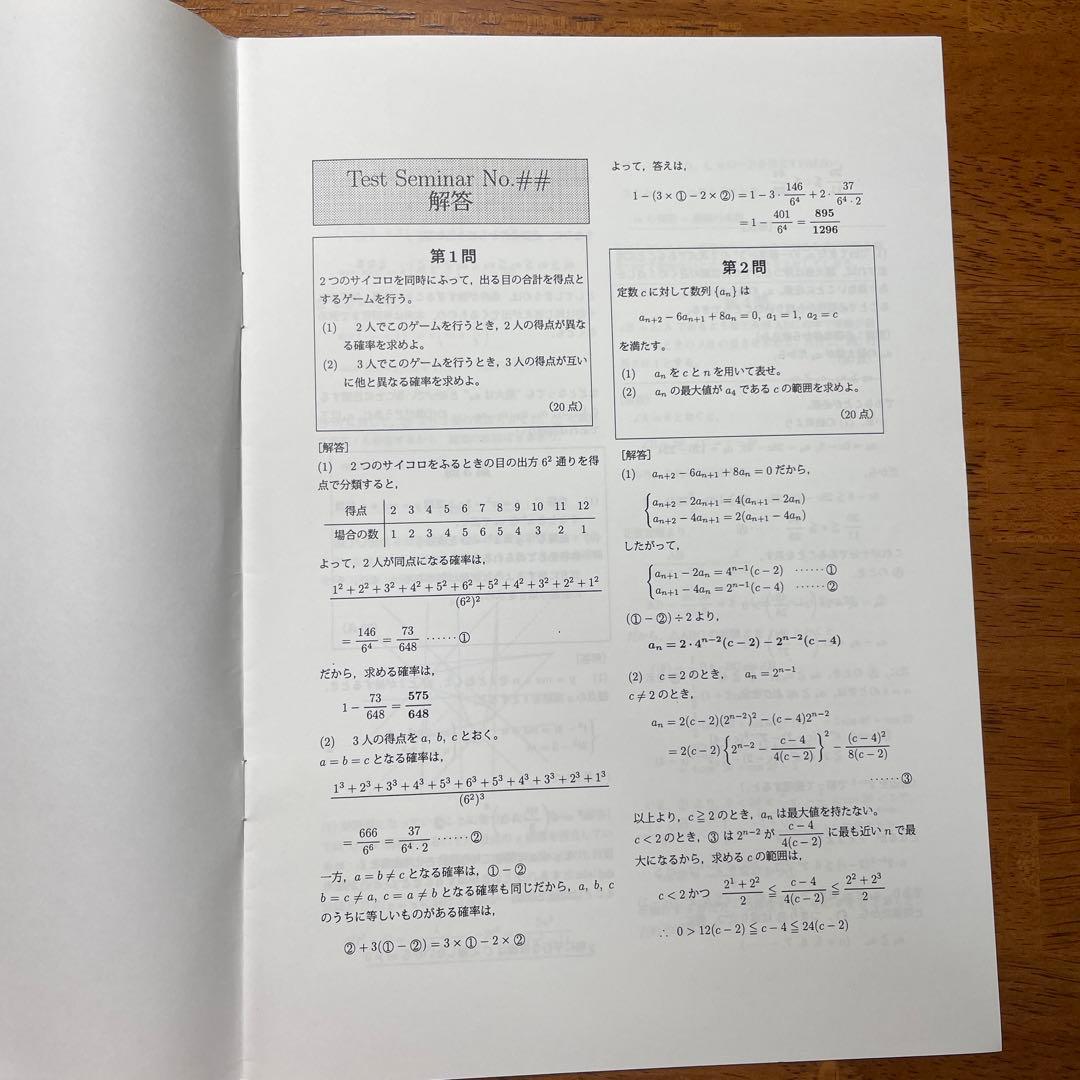 Test Seminar No.##
解答
第1問
2つのサイコロを同時にふって，出る目の合計を得点と
するゲームを行う。
(1) 2人でこのゲームを行うとき，2人の得点が異な
る確率を求めよ。
(2) 3人でこのゲームを行うとき，3人の得点が互い
に他と異なる確率を求めよ。
(20点)
[解答]
(1) 2つのサイコロをふるときの目の出方 6² 通りを得
点で分類すると，
得点 2 3 4 5 6 7 8 9 10 11 12
場合の数 1 2 3 4 5 6 5 4 3 2 1
よって，2人が同点になる確率は，
(1² + 2² + 3² + 4² + 5² + 6² + 5² + 4² + 3² + 2² + 1²)/(6²)²
= 146/6⁴ = 73/648 ……①
だから，求める確率は，
1 − 73/648 = 575/648
(2) 3人の得点を a, b, c とおく。
a = b = c となる確率は，
(1³ + 2³ + 3³ + 4³ + 5³ + 6³ + 5³ + 4³ + 3³ + 2³ + 1³)/(6²)³
= 666/6⁶ = 37/(6⁴・2) ……②
一方，a = b ≠ c となる確率は，① − ②
b = c ≠ a, c = a ≠ b となる確率も同じだから，a, b, c
のうちに等しいものがある確率は，
② + 3(① − ②) = 3 × ① − 2 × ②
よって，答えは，
1 − (3 × ① − 2 × ②) = 1 − 3・146/6⁴ + 2・37/(6⁴・2)
= 1 − 401/6⁴ = 895/1296
第2問
定数 c に対して数列 {aₙ} は
aₙ₊₂ − 6aₙ₊₁ + 8aₙ = 0, a₁ = 1, a₂ = c
を満たす。
(1) aₙ を c と n を用いて表せ。
(2) aₙ の最大値が a₄ である c の範囲を求めよ。
(20点)
[解答]
(1) aₙ₊₂ − 6aₙ₊₁ + 8aₙ = 0 だから，
{aₙ₊₂ − 2aₙ₊₁ = 4(aₙ₊₁ − 2aₙ)
aₙ₊₂ − 4aₙ₊₁ = 2(aₙ₊₁ − 4aₙ)
したがって，
{aₙ₊₁ − 2aₙ = 4ⁿ⁻¹(c − 2) ……①
aₙ₊₁ − 4aₙ = 2ⁿ⁻¹(c − 4) ……②
(① − ②) ÷ 2 より，
aₙ = 2・4ⁿ⁻²(c − 2) − 2ⁿ⁻²(c − 4)
(2) c = 2 のとき， aₙ = 2ⁿ⁻¹
c ≠ 2 のとき，
aₙ = 2(c − 2)(2ⁿ⁻²)² − (c − 4)2ⁿ⁻²
= 2(c − 2){2ⁿ⁻² − (c − 4)/(4(c − 2))}² − (c − 4)²/(8(c − 2))
……③
以上より，c ≧ 2 のとき，aₙ は最大値を持たない。
c < 2 のとき，③ は 2ⁿ⁻² が (c − 4)/(4(c − 2)) に最も近い n で最
大になるから，求める c の範囲は，
c < 2 かつ (2¹ + 2²)/2 ≦ (c − 4)/(4(c − 2)) ≦ (2² + 2³)/2
∴ 0 > 12(c − 2) ≦ c − 4 ≦ 24(c − 2)